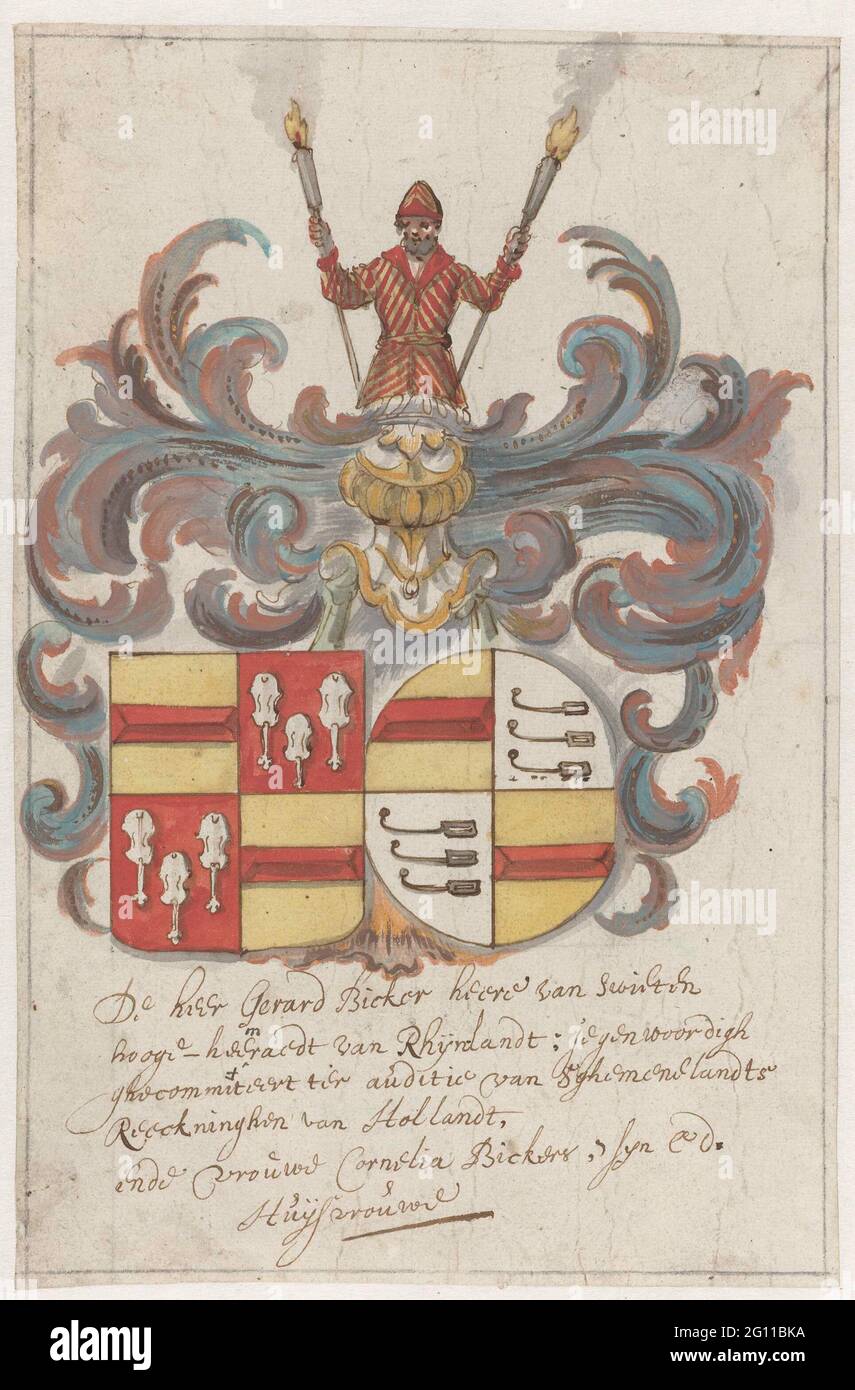 De heer Gerard Bicker heere van Swieten
hooge-heemraedt van Rhijnlandt; jegenwoordigh
ghecommitteert ter auditie van 'sghemenelandts
Reeckninghen van Hollandt,
ende vrouwe Cornelia Bickers, syn Ed.
Huysvrouwe
alamy
Image ID: 2G11BKA
www.alamy.com